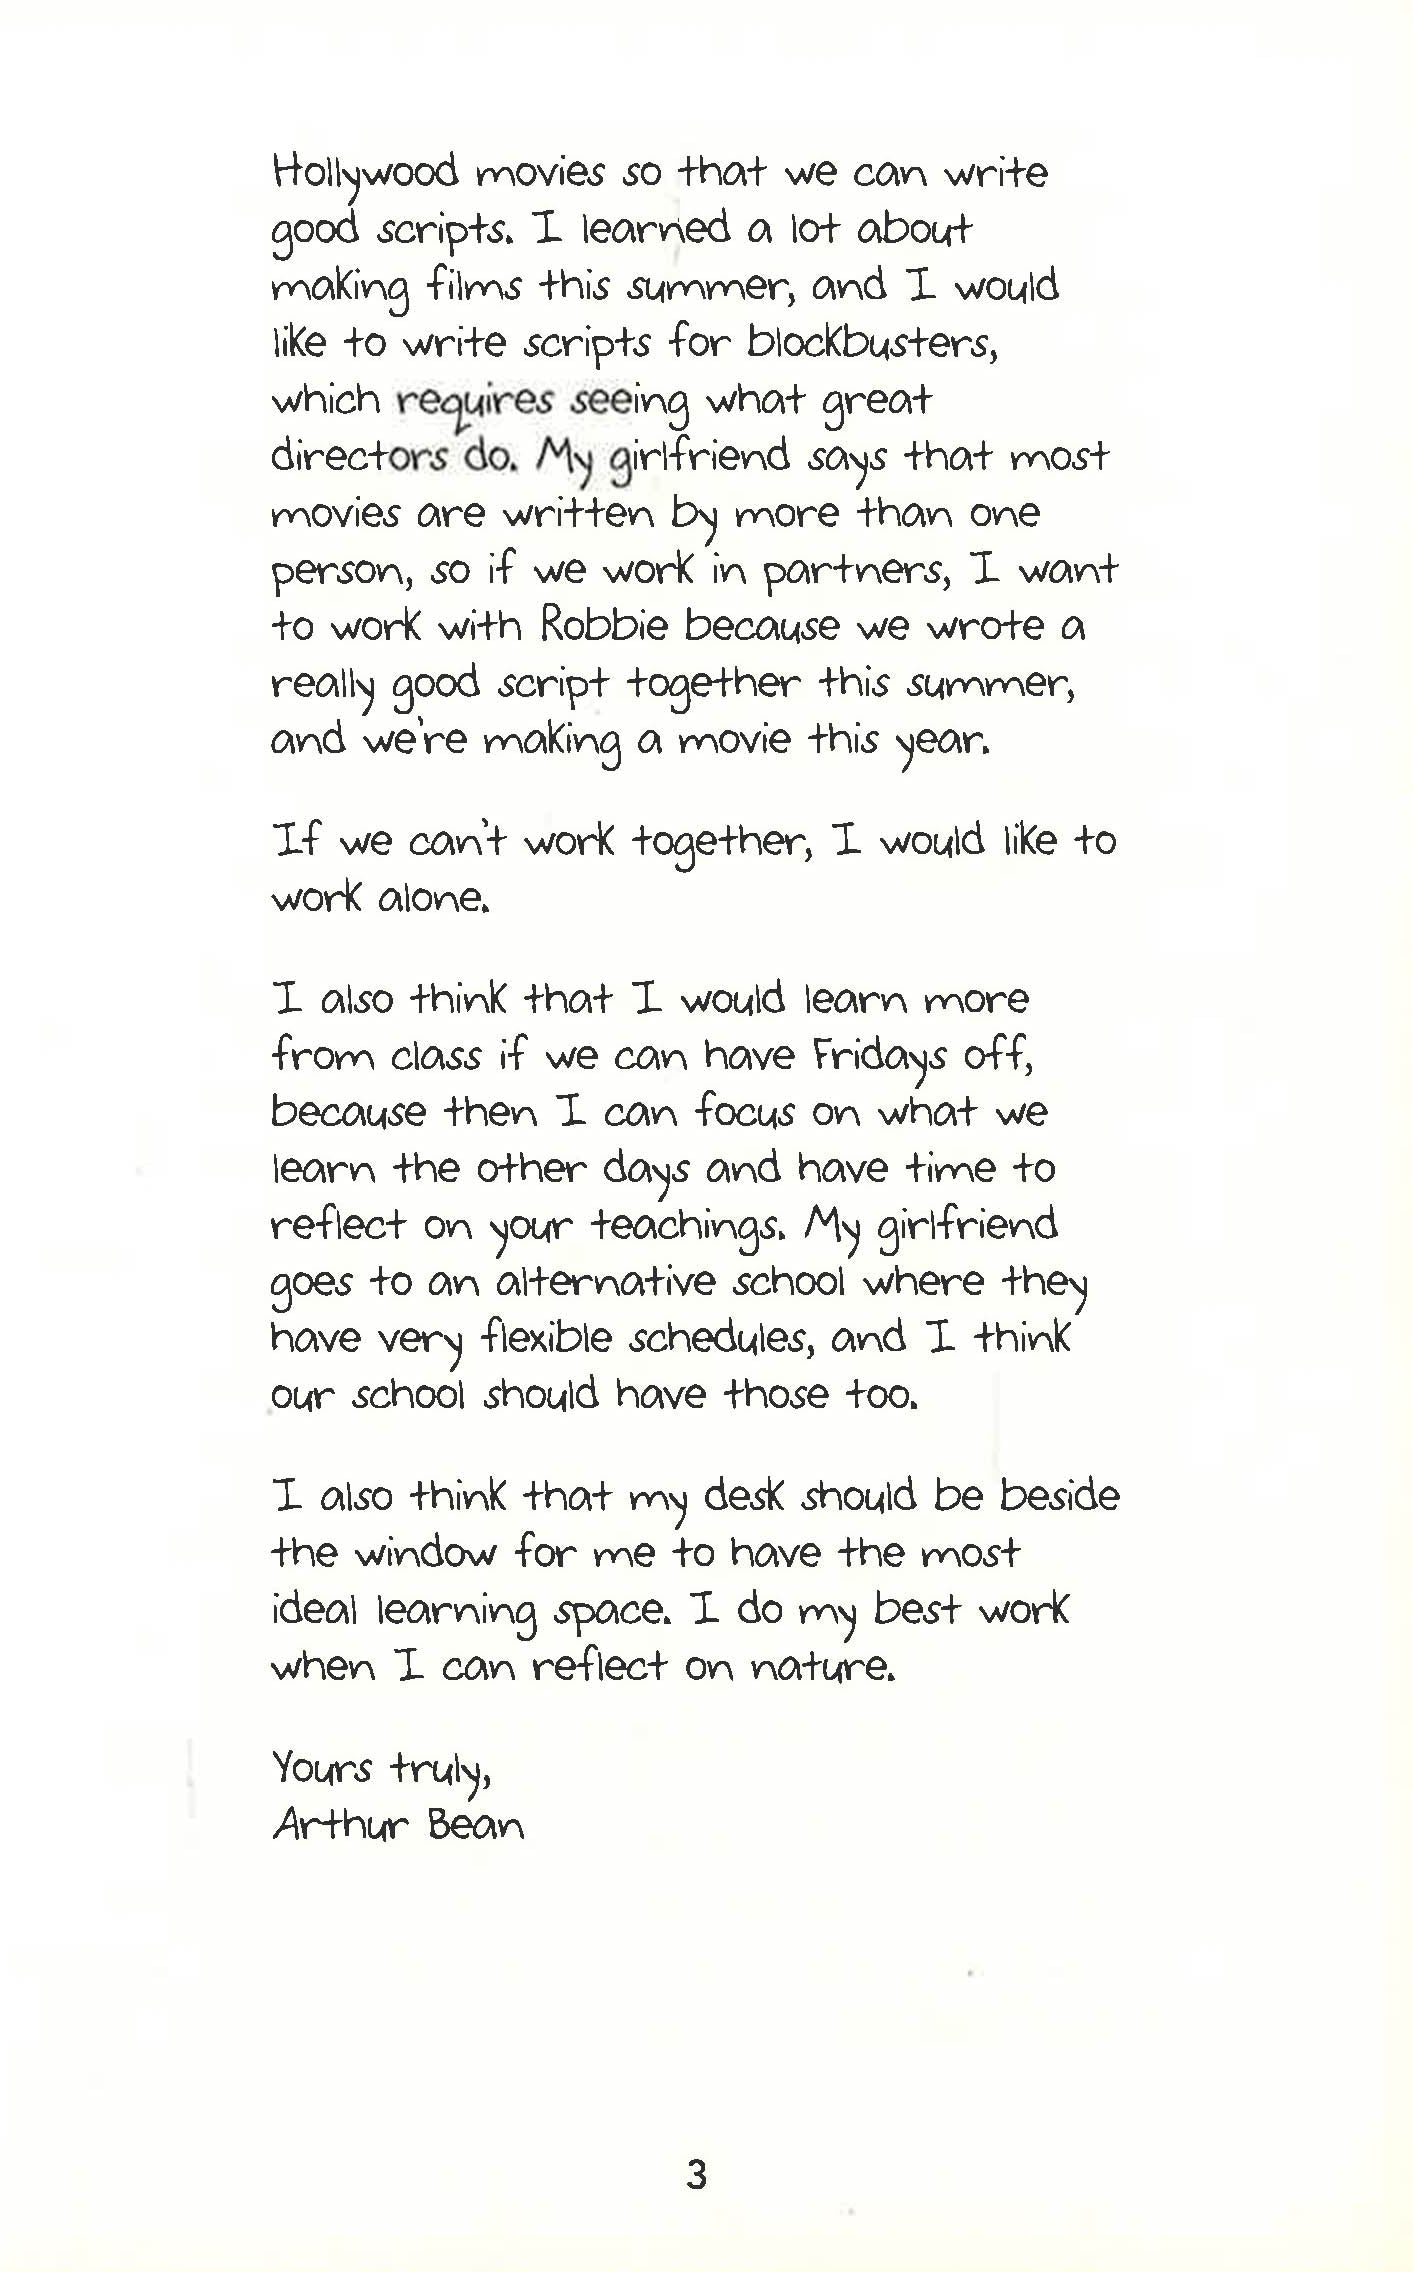 Hollywood movies so that we can write
good scripts. I learned a lot about
making films this summer, and I would
like to write scripts for blockbusters,
which requires seeing what great
directors do. My girlfriend says that most
movies are written by more than one
person, so if we work in partners, I want
to work with Robbie because we wrote a
really good script together this summer,
and we're making a movie this year.
If we can't work together, I would like to
work alone.
I also think that I would learn more
from class if we can have Fridays off,
because then I can focus on what we
learn the other days and have time to
reflect on your teachings. My girlfriend
goes to an alternative school where they
have very flexible schedules, and I think
our school should have those too.
I also think that my desk should be beside
the window for me to have the most
ideal learning space. I do my best work
when I can reflect on nature.
Yours truly,
Arthur Bean
3